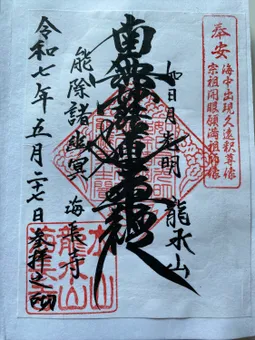 奉安
海中出現久遠釈尊像
宗祖開眼願満祖師像
如日月光明 龍水山
南無妙法蓮華経
能除諸幽冥 海長寺
令和七年五月二十七日 参拝之砌